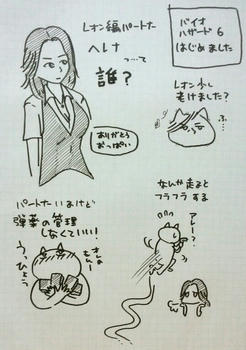 バイオ
ハザード6
はじめました
レオン編パートナー
ヘレナ
って
誰?
ありがとう
おっぱい
レオン少し
老けました?
ふ…
パートナーいるけど
弾薬の管理
しなくていい!
うっひょう
なんか走ると
フラフラする
アレー?